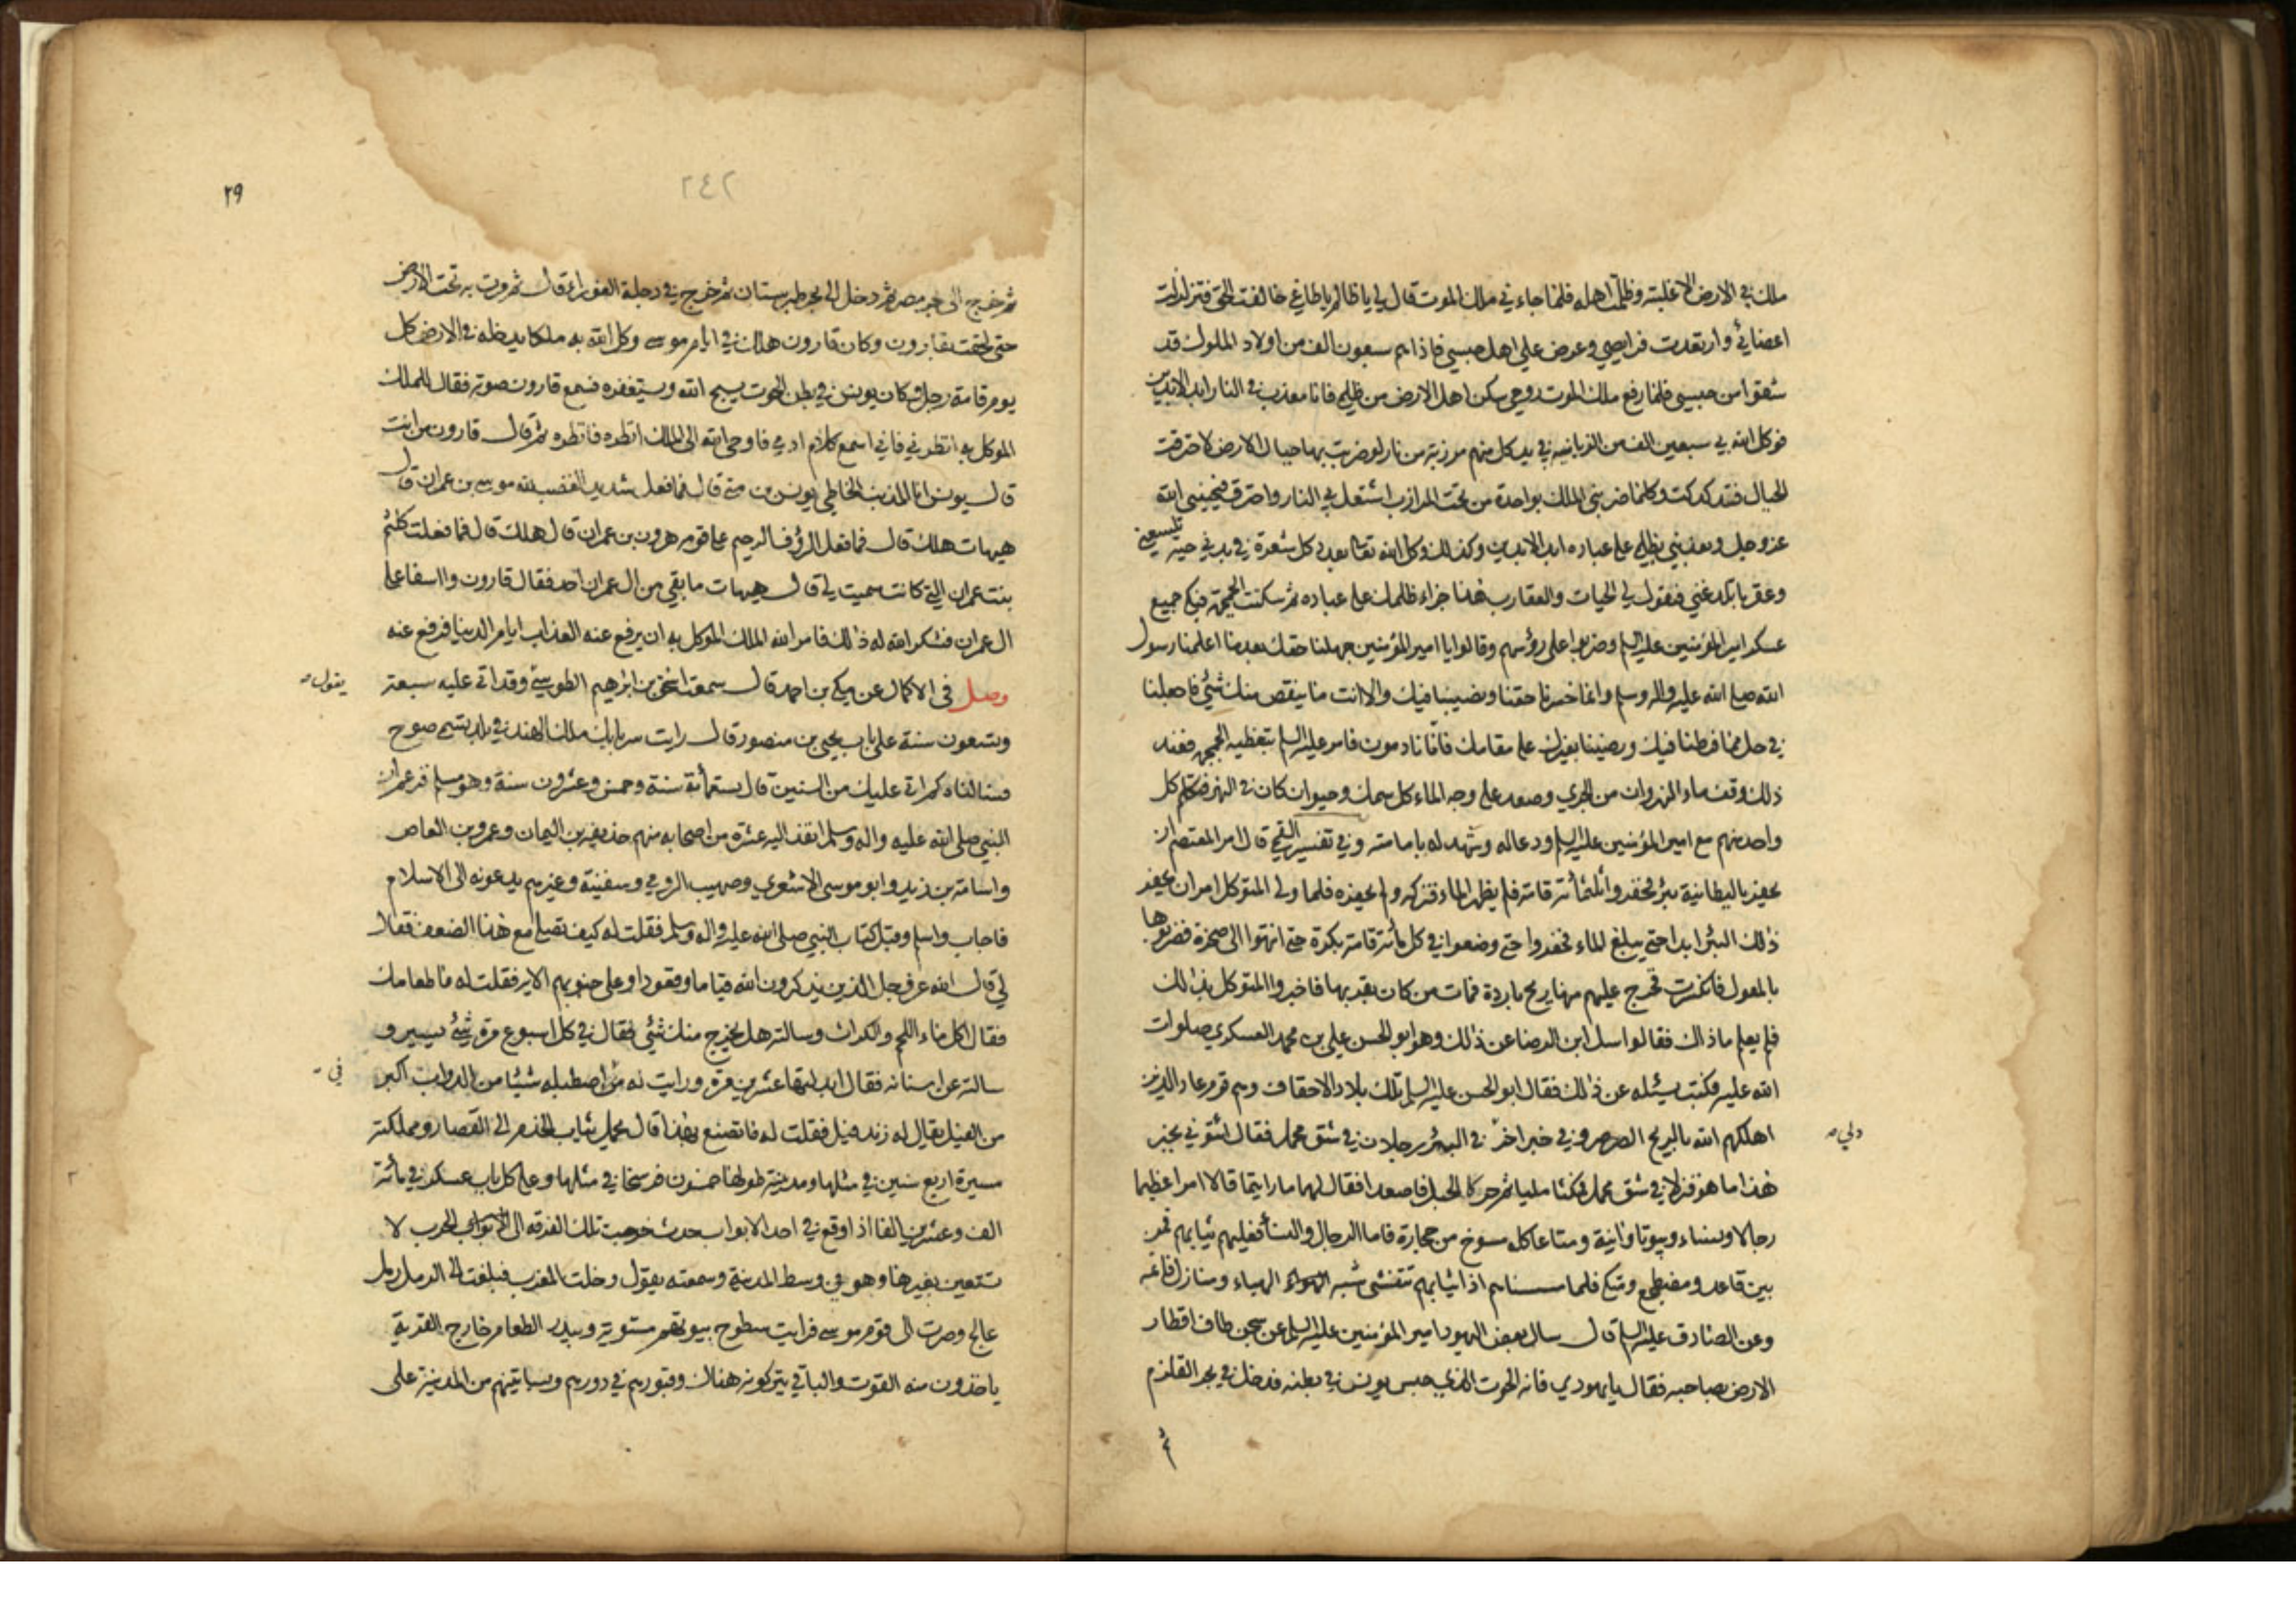 ملك في الارض الا غلبته وظلمت اهله فلما جاءني ملك الموت قال لي يا ظالم يا طاغي خالفت الحق فتزلزلت
اعضائي وارتعدت فرايصي وعرض علي اهل حبسي فاذا هم سبعون الف من اولاد الملوك قد
شقوا من حبسي فلما رفع ملك الموت روحي سكن اهل الارض من ظلمي فانا معذب في النار ابد الابدين
فوكل الله بي سبعين الف من الزبانيه في يد كل منهم مرزبة من نار لو ضربت بها جبال الارض لاحترقت
الجبال فتدكدكت وكلما ضربني الملك بواحدة من تحت المرازب اشتعل بي النار واحترق فيحييني الله
عز وجل ويعذبني بظلمي على عباده ابد الابدين وكذلك وكل الله تعالى بعدد كل شعرة في بدني حية تلسعني
وعقربا تلدغني فتقول لي الحيات والعقارب هذا جزاء ظلمك على عباده ثم سكنت الجمجمة فبكى جميع
عسكر امير المؤمنين عليه السلم وضربوا على رؤسهم وقالوا يا امير المؤمنين جهلنا حقك بعد ما اعلمنا رسول
الله صلى الله عليه واله وسلم وانما خسرنا حقنا ونصيبنا فيك والا انت ما ينقص منك شئ فاجعلنا
في حل مما فرطنا فيك ورضينا بغيرك على مقامك فانا نادمون فامر عليه السلم بتغطية الجمجمة فعند
ذلك وقف ماء النهروان من الجري وصعد على وجه الماء كل سمك وحيوان كان في النهر فتكلم كل
واحد منهم مع امير المؤمنين عليه السلم ودعا له وشهد له بامامته وفي تفسير القمي قال امر المعتصم ان
يحفر بالبطانية بئر فحفروا ثلثمائة قامة فلم يظهر الماء فتركه ولم يحفره فلما ولى المتوكل امر ان يحفر
ذلك البئر ابدا حتى يبلغ الماء فحفروا حتى وضعوا في كل مائة قامة بكرة حتى انتهوا الى صخرة فضربوها
بالمعول فانكسرت فخرج عليهم منها ريح باردة فمات من كان بقربها فاخبروا المتوكل بذلك
فلم يعلم ما ذاك فقالوا سل ابن الرضا عن ذلك وهو ابو الحسن علي بن محمد العسكري صلوات
الله عليه فكتب يسئله عن ذلك فقال ابو الحسن عليه السلم تلك بلاد الاحقاف وهم قوم عاد الذين
اهلكهم الله بالريح الصرصر وفي خبر اخر في البئر رجلان في شق محمل فقال ائتوني بخبر
دلي
هذا ما هو فنزلا في شق محمل فمكثا مليا ثم حركا الحبل فاصعدا فقال لهما ما رايتما قالا امرا عظيما
رجالا ونساء وبيوتا وانية ومتاعا كله مسوخ من حجارة فاما الرجال والنساء فعليهم ثيابهم فمن
بين قاعد ومضطجع ومتكئ فلما مسسناهم اذا ثيابهم تتفشى شبه الهواء الهباء ومنازل قائمة
وعن الصادق عليه السلم قال سال بعض اليهود امير المؤمنين عليه السلم عن سجن طاف اقطار
الارض بصاحبه فقال يا يهودي فانه الحوت الذي حبس يونس في بطنه فدخل في بحر القلزم
ثم
٢٩
٢٤٢
ثم خرج الى بحر مصر ثم دخل الى بحر طبرستان ثم خرج في دجلة الغوراء قال ثم مرت به تحت الارض
حتى لحقت بقارون وكان قارون هلك في ايام موسى ووكل الله به ملكا يدخله في الارض كل
يوم قامة رجل وكان يونس في بطن الحوت يسبح الله ويستغفره فسمع قارون صوته فقال للملك
الموكل به انظرني فاني اسمع كلام ادمي فاوحى الله الى الملك انظره فانظره ثم قال قارون من انت
قال يونس انا المذنب الخاطي يونس بن متى قال فما فعل شديد الغضب لله موسى بن عمران قال
هيهات هلك قال فما فعل الرؤف الرحيم على قومه هرون بن عمران قال هلك قال فما فعلت كلثم
بنت عمران التي كانت سميت لي قال هيهات ما بقي من ال عمران احد فقال قارون وا اسفا على
ال عمران فشكر الله له ذلك فامر الله الملك الموكل به ان يرفع عنه العذاب ايام الدنيا فرفع عنه
وصل في الاكمال عن مكي بن احمد قال سمعت اسحق بن ابرهيم الطوسي وقد اتى عليه سبعة
يقول
وتسعون سنة على باب يحيى بن منصور قال رايت سربابك ملك الهند في بلد يسمى صوح
فسالناه كم اتى عليك من السنين قال تسعمائة سنة وخمس وعشرون سنة وهو مسلم فزعم ان
النبي صلى الله عليه واله وسلم انفذ اليه عشرة من اصحابه منهم حذيفه بن اليمان وعمرو بن العاص
واسامة بن زيد وابو موسى الاشعري وصهيب الرومي وسفينة وغيرهم يدعونه الى الاسلام
فاجاب واسلم وقبل كتاب النبي صلى الله عليه واله وسلم فقلت له كيف تصلي مع هذا الضعف فقال
لي قال الله عز وجل الذين يذكرون الله قياما وقعودا وعلى جنوبهم الاية فقلت له ما طعامك
فقال اكل ماء اللحم والكراث وسالته هل يخرج منك شئ فقال في كل اسبوع مرة شئ يسير و
سالته عن اسنانه فقال ابدلتها عشرين مرة ورايت له في اصطبله شيئا من الدواب اكبر
في
من الفيل يقال له زنده فيل فقلت له ما تصنع بهذا قال يحمل ثياب الخدم الى القصار ومملكته
مسيرة اربع سنين في مثلها ومدينته طولها خمسون فرسخا في مثلها وعلى كل باب عسكر في مائة
الف وعشرين الفا اذا وقع في احد الابواب حدث خرجت تلك الفرقه الى الحرب لا
تستعين بغيرها وهو في وسط المدينة وسمعته يقول دخلت المغرب فبلغت الى الرمل رمل
عالج وصرت الى قوم موسى فرايت سطوح بيوتهم مستوية وبيدر الطعام خارج القرية
ياخذون منه القوت والباقي يتركونه هناك وقبورهم في دورهم وبساتينهم من المدينة على